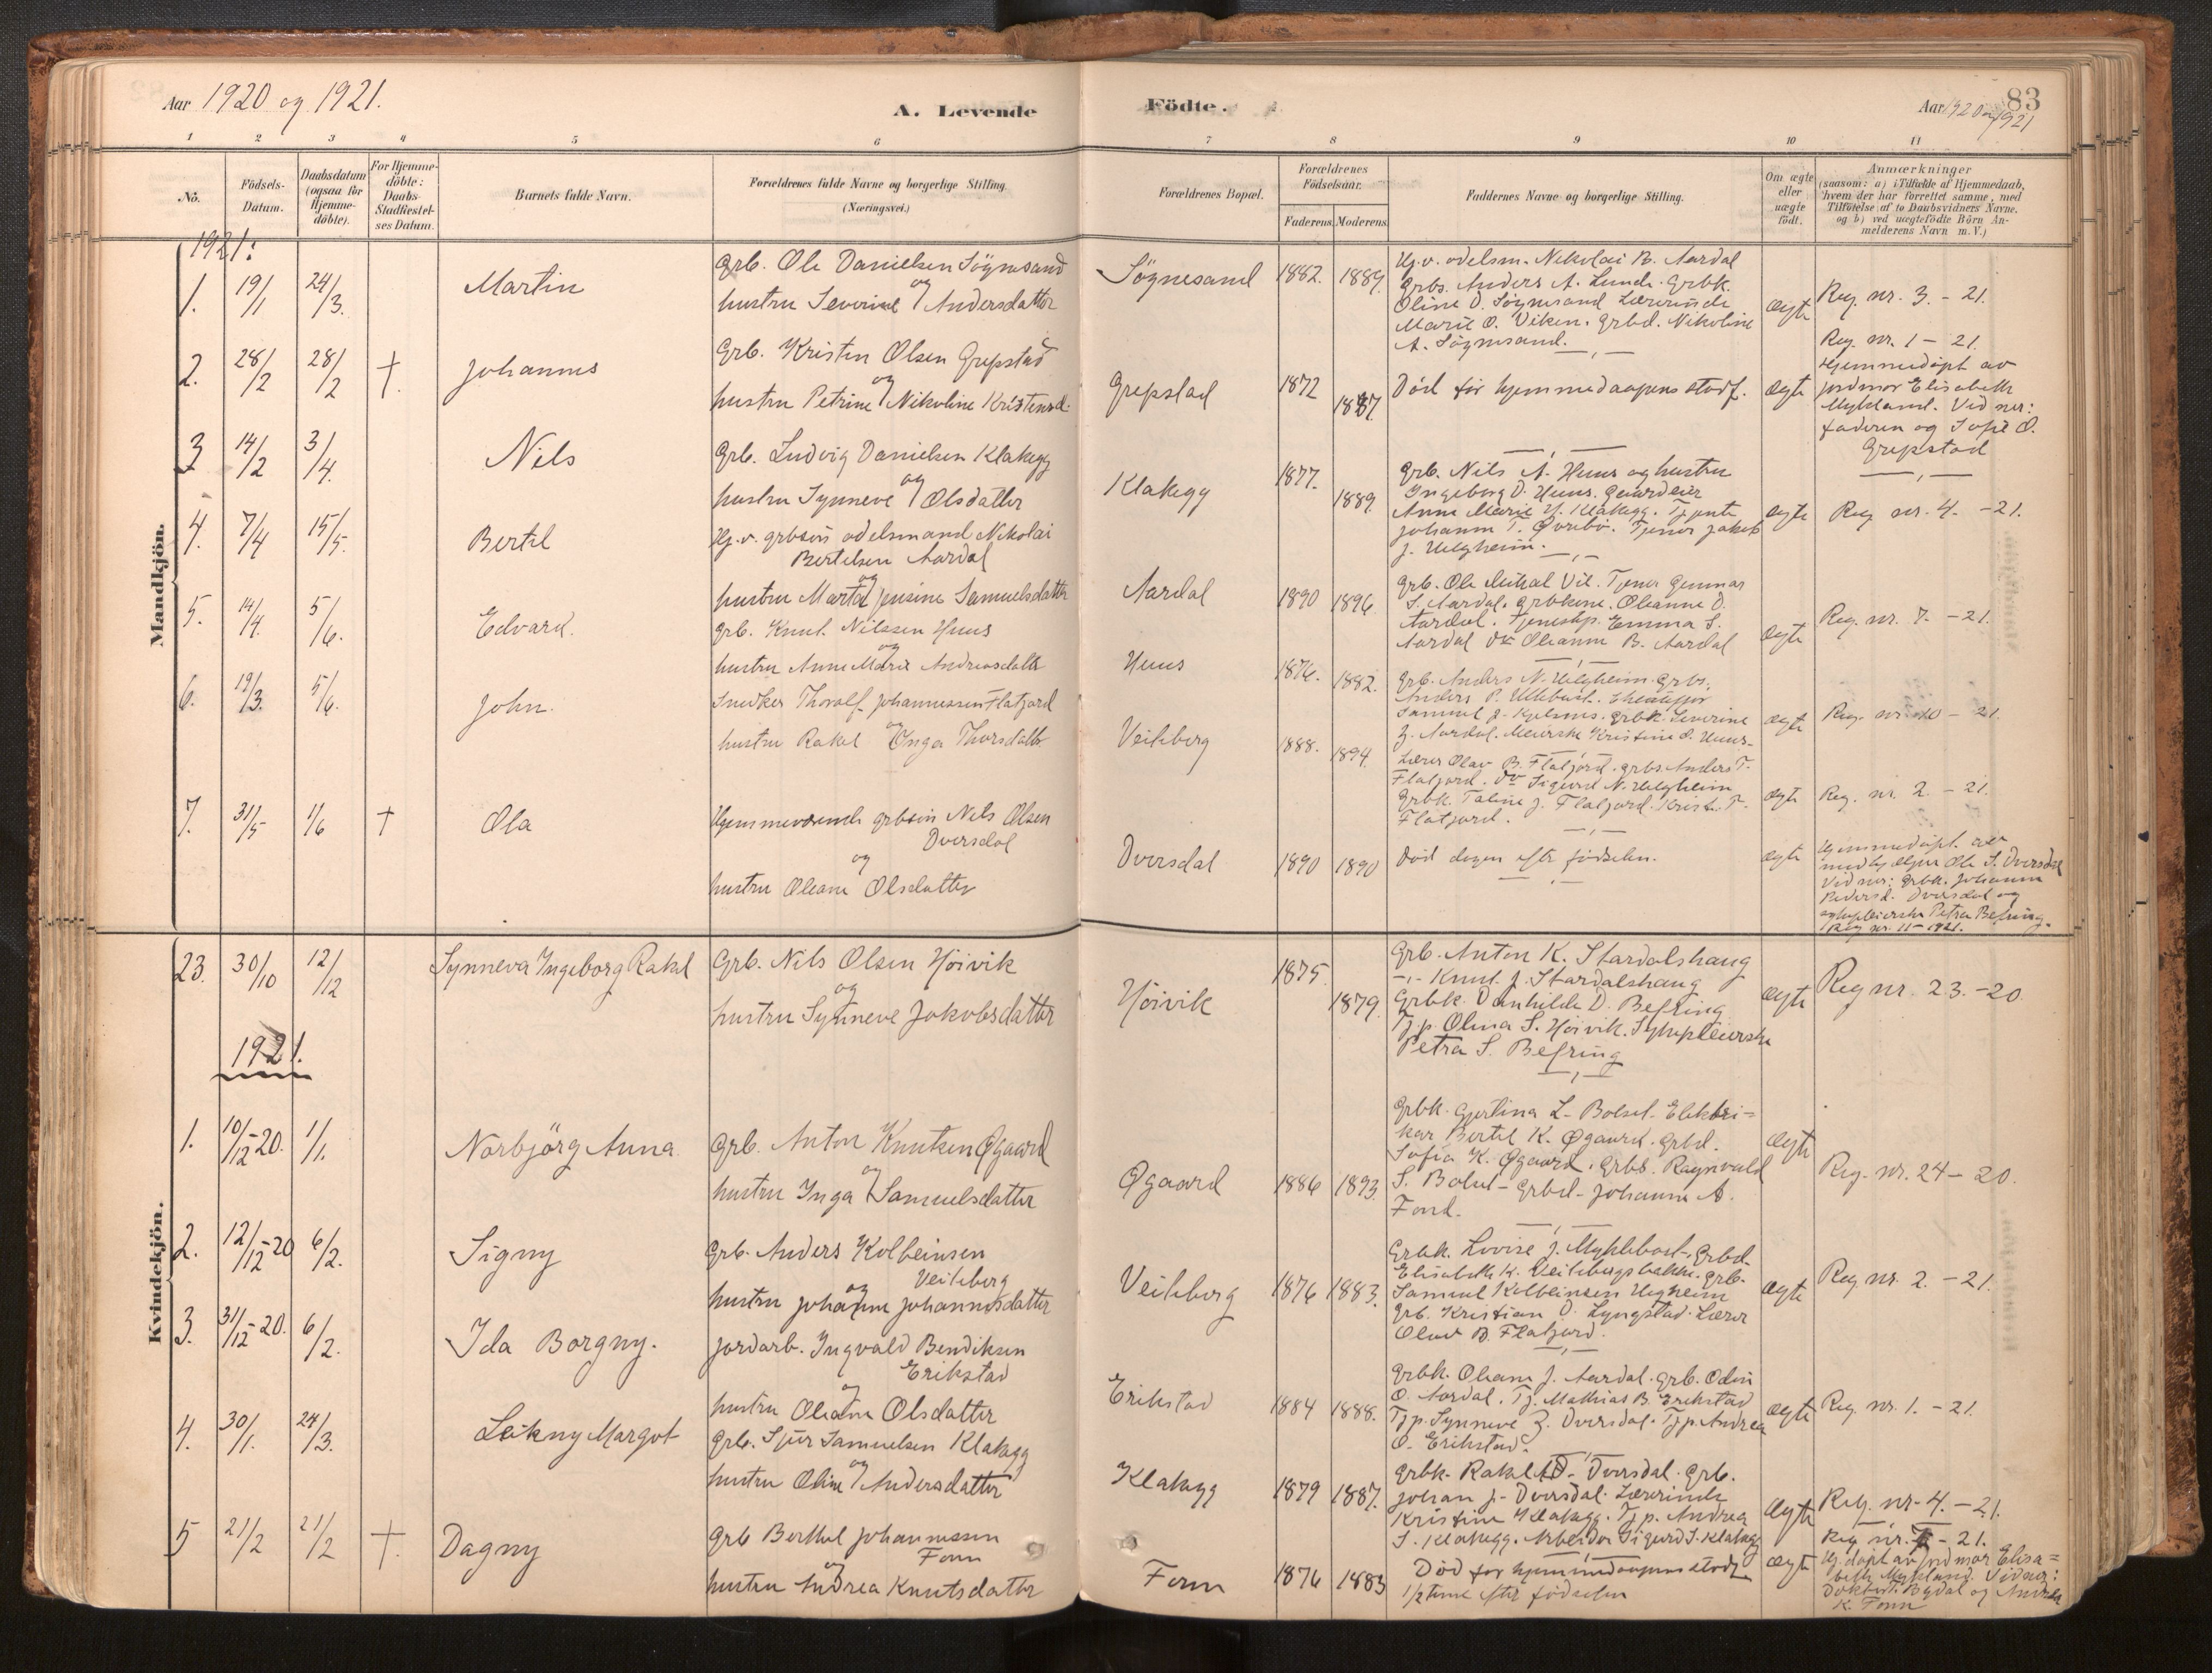 Aar 1920 og 1921.
A. Levende
Födte.
Aar 1920 og 1921
83
1 2 3 4 5 6 7 8 9 10 11
No.
Födsels-
Datum.
Daabsdatum
(ogsaa for
Hjemme-
döbte).
For Hjemme-
döbte:
Daabs-
Stadfæstel-
ses Datum.
Barnets fulde Navn.
Forældrenes fulde Navne og borgerlige Stilling.
(Næringsvei.)
Forældrenes Bopæl.
Forældrenes
Födselsaar.
Faderens Moderens
Faddernes Navne og borgerlige Stilling.
Om ægte
eller
uægte
födt.
Anmærkninger
(saasom: a) i Tilfælde af Hjemmedaab,
hvem der har forrettet samme, med
Tilföielse af to Daabsvidners Navne,
og b) ved uægtefödte Börn An-
melderens Navn m. V.)
Mandkjön.
1921:
1. 19/1 24/3. Martin
Grb. Ole Danielsen Sögnesand
og
hustru Severine Andersdatter
Sögnesand 1882. 1889.
Hj.v. odelsm. Nikolai B. Aardal
Grbs. Anders A. Lunde. Grbk.
Oline D. Sögnesand Lærerinde
Marie O. Viken. Grbd. Nikoline
A. Sögnesand.
ægte
Reg. nr. 3. - 21.
2. 28/2 28/2 † Johannes
Grb. Kristen Olsen Grepstad
og
hustru Petrine Nikoline Kristensd.
Grepstad 1872 1887
Död för hjemmedaapens stadf.
ægte
Reg. nr. 1 - 21.
Hjemmedöpt av
jordmor Elisabeth
Mykland. Vidner:
faderen og Sofie O.
Grepstad
3 14/2 3/4. Nils
Grb. Ludvig Danielsen Klakegg
og
hustru Synneve Olsdatter
Klakegg 1877. 1889.
Grb. Nils A. Huus og hustru
Ingeborg D. Huus. Gaardeier
Anne Marie N. Klakegg. Tjente
Johanne T. Øvrebö. Tjener Jakob
J. Helgheim.
ægte
Reg nr. 4. - 21.
4. 7/4 15/5. Bertel
Hj.v. grbsön odelsmand Nikolai
Bertelsen Aardal
og
hustru Marta Jensine Samuelsdatter
Aardal 1890 1896.
Grb. Ole Mikal Vik. Tjener Gunnar
S. Aardal. Grbkone. Oleanne D.
Aardal. Tjenestep. Emma S.
Aardal Do Oleanne B. Aardal
ægte
Reg. nr. 7. - 21.
5. 14/4. 5/6. Edvard.
Grb. Knut Nilssen Huus
og
hustru Anne Marie Andreasdatter
Huus 1876. 1882.
Grb. Anders N. Helgheim. Grbs.
Samuel J. Grbk. Severine
Z. Aardal. Meierske Kristine O. Huus.
ægte
Reg. nr. 10 - 21.
6. 19/3. 5/6. John.
Snedker Thoralf Johannessen Flatjord
og
hustru Rakel Inga Thorsdatter
Veiteberg 1888. 1894.
Lærer Olav B. Flatjord. Grbs. Anders T.
Flatjord. Do Sigurd N. Helgheim
Grbk. Taline J. Flatjord. Krist. T.
Flatjord.
ægte
Reg. nr. 2. - 21.
7. 31/5 1/6 † Ola
Hjemmeværende grbsön Nils Olsen
Dversdal
og
hustru Oleane Olsdatter
Dversdal 1890 1890
Död dagen efter födselen.
ægte
Hjemmedöpt av
Ole S. Dversdal
Vidner: Grbk. Johanne
Pedersd. Dversdal og
sykepleierske Petra Befring.
Reg nr. 11 - 1921.
Kvindekjön.
23. 30/10 12/12 Synneva Ingeborg Rakel
Grb. Nils Olsen Höivik
og
hustru Synneve Jakobsdatter
Höivik 1875. 1879.
Grb. Anton K. Stardalshaug
-,- Knut J. Stardalshaug
Grbk. Danhilde D. Befring
Tj.p. Olina S. Höivik. Sykepleierske
Petra S. Befring
ægte
Reg nr. 23. - 20.
1921.
1. 10/12-20. 1/1. Norbjörg Anna
Grb. Anton Knutsen Øgaard
og
hustru Inga Samuelsdatter
Øgaard 1886 1893.
Grbk. Gjertina L. Bolset. Elektri=
ker Bertel K. Øgaard. Grbd.
Sofia K. Øgaard. Grbs. Ragnvald
S. Bolset - Grbd. Johanne A.
Fond.
ægte
Reg. nr. 24 - 20.
2. 12/12-20 6/2. Signy
Grb. Anders Kolbeinsen
Veiteberg
og
hustru Johanne Johannesdatter
Veiteberg 1876 1883.
Grbk. Lovise J. Myklebost. Grbd.
Elisabeth K. Veitebergsbakke. Grb.
Samuel Kolbeinsen Hegheim
Grb. Kristian O. Lyngstad. Lærer
Olav B. Flatjord.
ægte
Reg nr. 2. - 21.
3. 31/12-20. 6/2. Ida Borgny.
Jordarb. Ingvald Bendiksen
Erikstad
og
hustru Oleane Olsdatter
Erikstad 1884 1888.
Grbk. Oleane J. Aardal. Grb. Odin
O. Aardal. Tj. Mathias B. Erikstad
Tj.p. Synneve Z. Dversdal. Tj.p. Andrea
O. Erikstad.
ægte
Reg. nr. 1. - 21.
4. 30/1. 24/3. Leikny Margot
Grb. Sjur Samuelsen Klakegg
og
hustru Oline Andersdatter
Klakegg 1879 1887.
Grbk. Rakel D. Dversdal. Grb.
Johan J. Dversdal. Lærerinde
Kristine Klakegg. Tj.p. Andrea
S. Klakegg. Arbeider Sigurd S. Klakegg
ægte
Reg. nr. 4. - 21.
5 21/2 21/2 †. Dagny
Grb Berthel Johannessen
Fonn
og
hustru Andrea Knutsdatter
Fonn 1876 1883
Död för hjemmedaapens stadf.
1/2 time efter födselen
ægte
Reg nr. - 21.
Hj.döpt av jordmor Elisa=
beth Mykland. Vidner:
Bydal og Andrea
K. Fonn